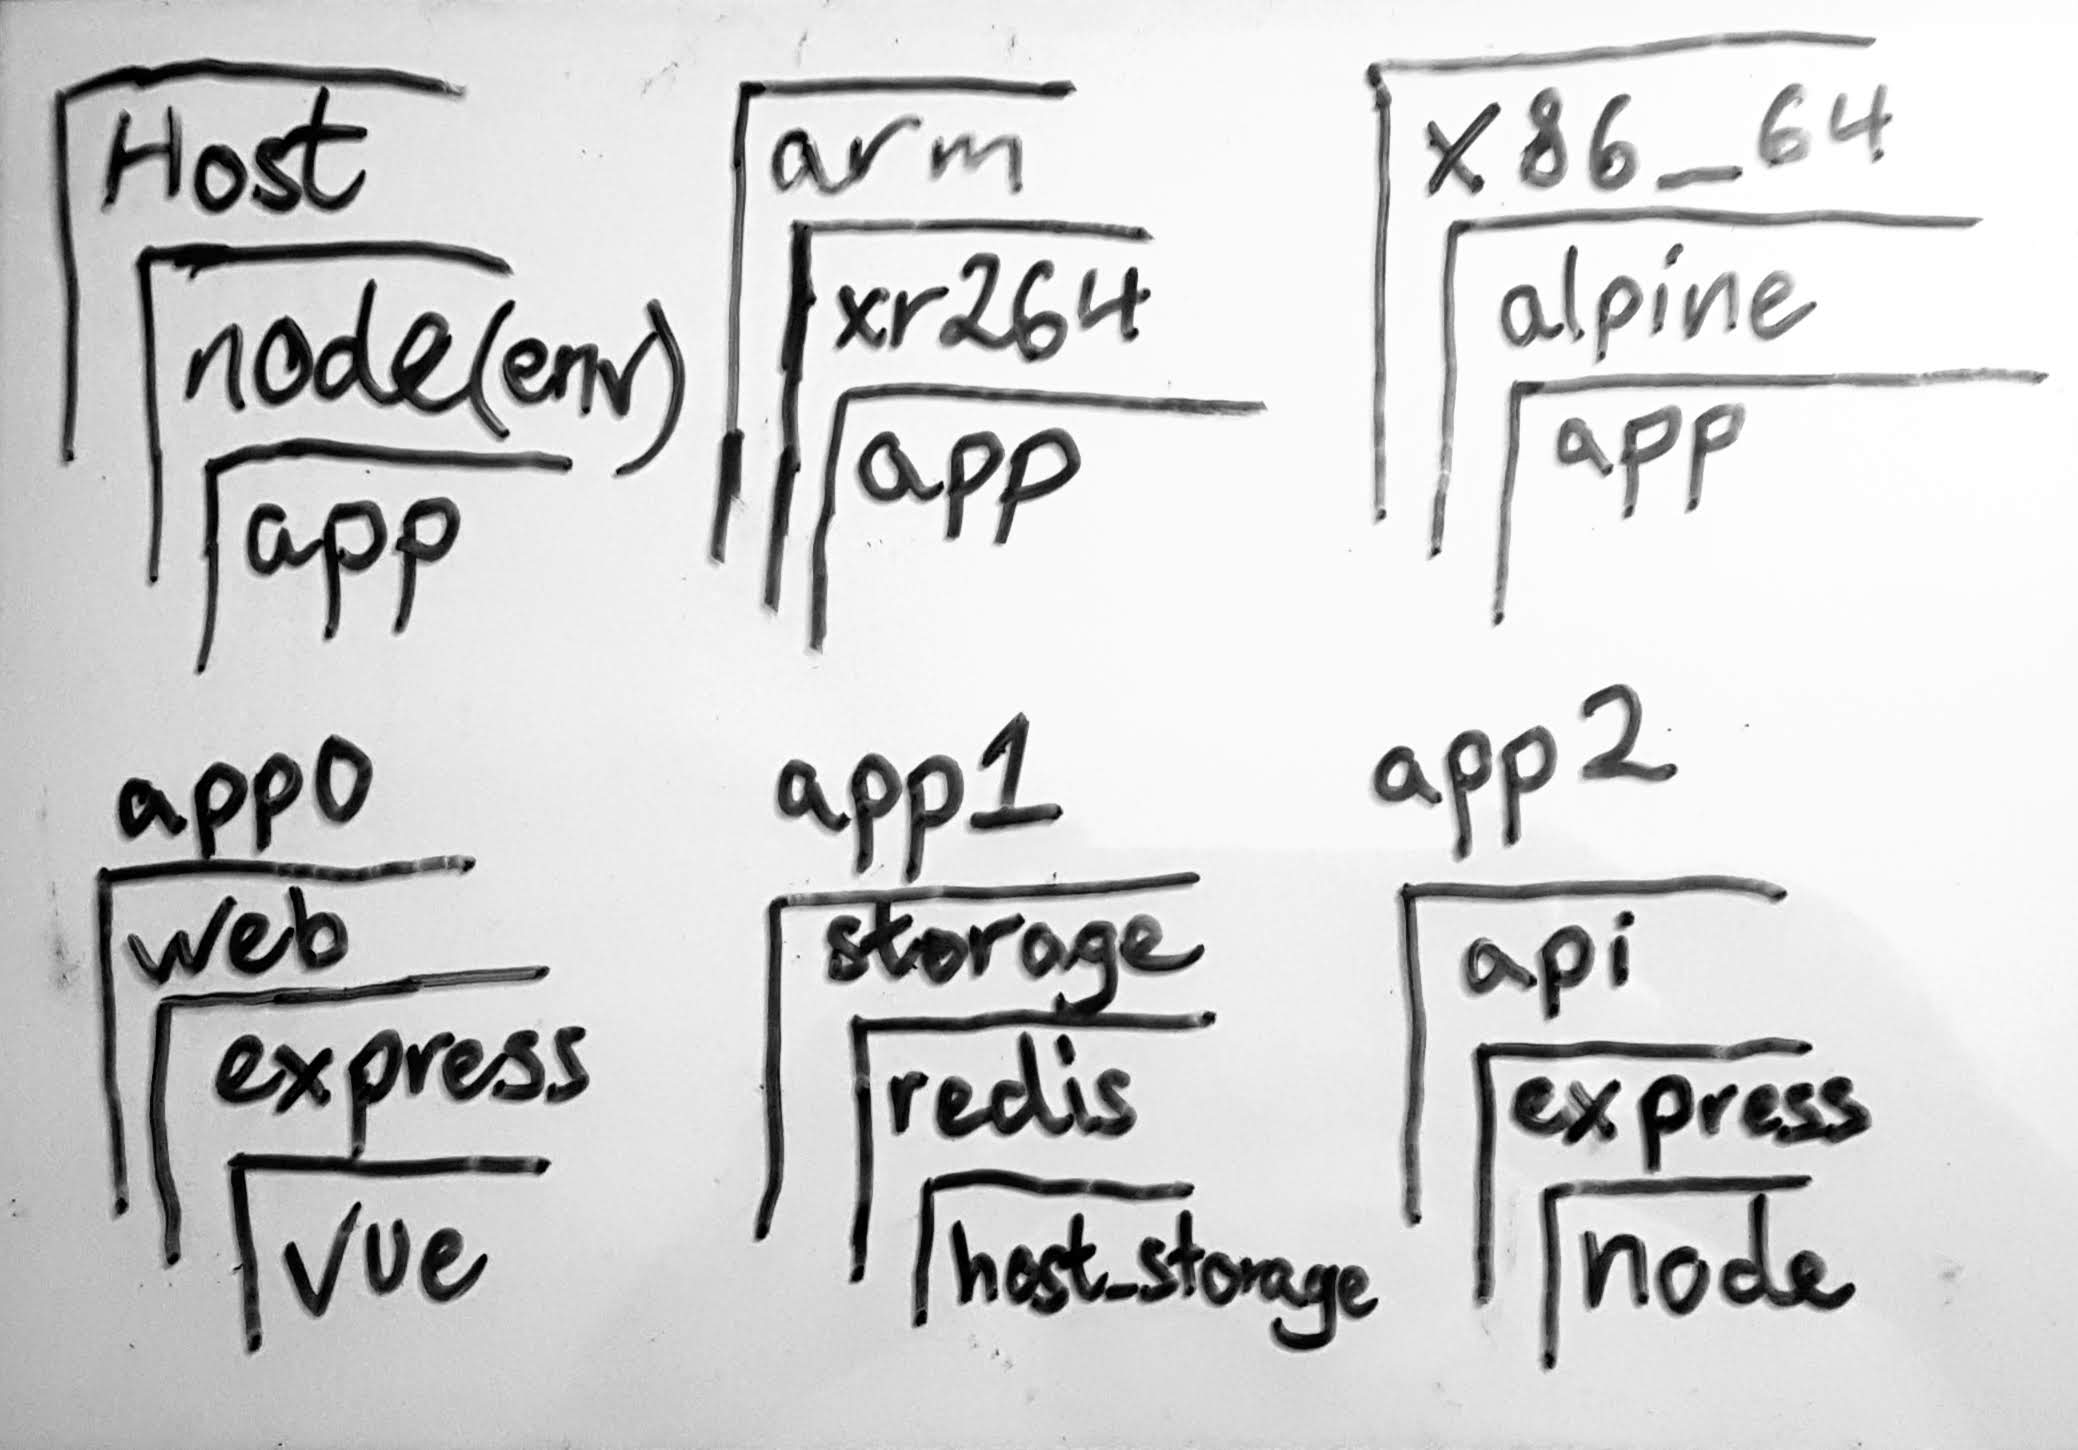 Host
node(env)
app
arm
xr264
app
x86_64
alpine
app
app0
web
express
vue
app1
storage
redis
host_storage
app2
api
express
node